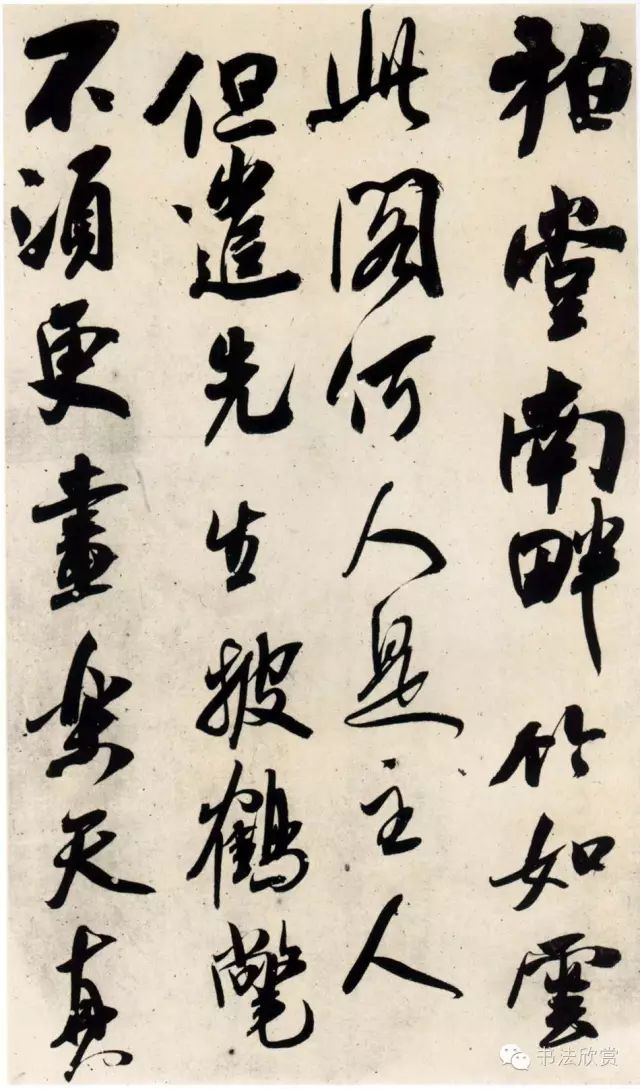 栢堂南畔竹如雲
此閣何人是主人
但遣先生披鶴氅
不須更畫樂天真
书法欣赏